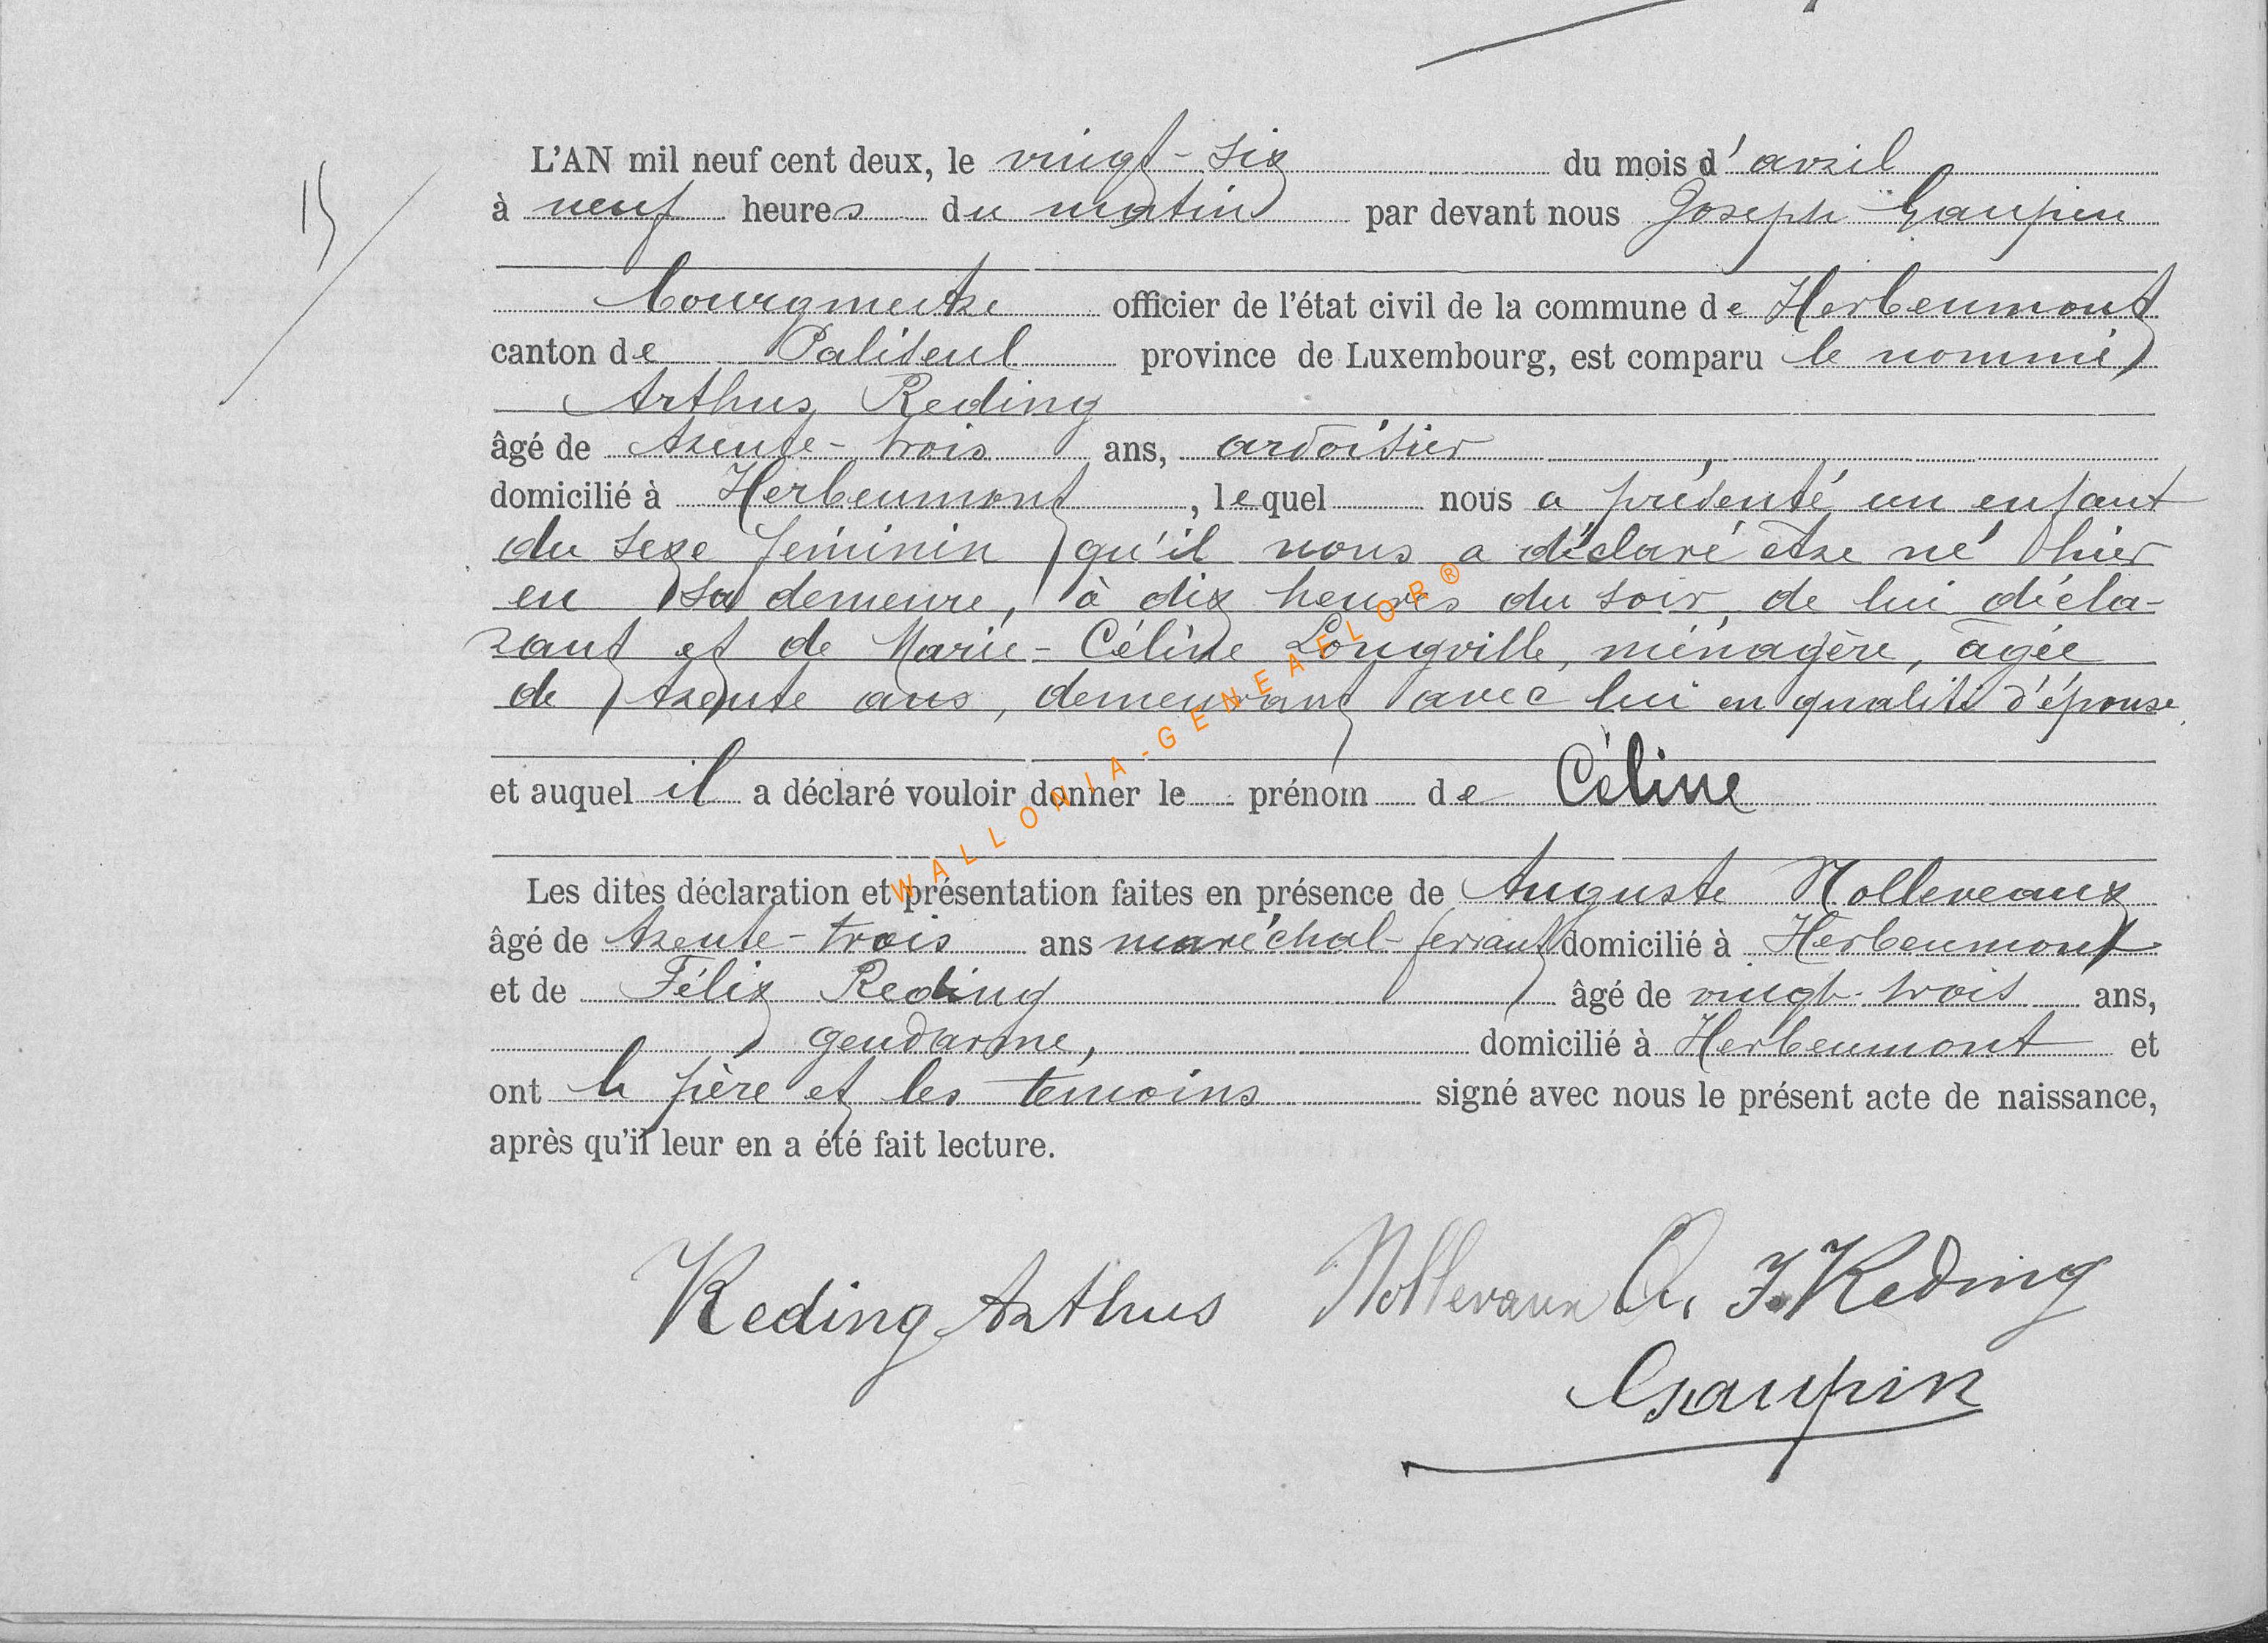 L'AN mil neuf cent deux, le vingt-six du mois d'avril
15
à neuf heures du matin par devant nous Joseph Gaupin
bourgmestre officier de l'état civil de la commune de Herbeumont
canton de Paliseul province de Luxembourg, est comparu le nommé
Arthur Reding
âgé de trente-trois ans, ardoisier,
domicilié à Herbeumont, lequel nous a présenté un enfant
du sexe féminin qu'il nous a déclaré être né hier
en sa demeure, à dix heures du soir, de lui décla-
rant et de Marie-Céline Longville, ménagère, âgée
de trente ans, demeurant avec lui en qualité d'épouse,
et auquel il a déclaré vouloir donner le prénom de Céline
Les dites déclaration et présentation faites en présence de Auguste Nolleveaux
âgé de trente-trois ans maréchal-ferrant domicilié à Herbeumont
et de Félix Reding âgé de vingt-trois ans,
gendarme, domicilié à Herbeumont et
ont le père et les témoins signé avec nous le présent acte de naissance,
après qu'il leur en a été fait lecture.
Reding Arthur Nollevaux A. F. Reding
Gaupin
WALLONIA-GENEAELOR®